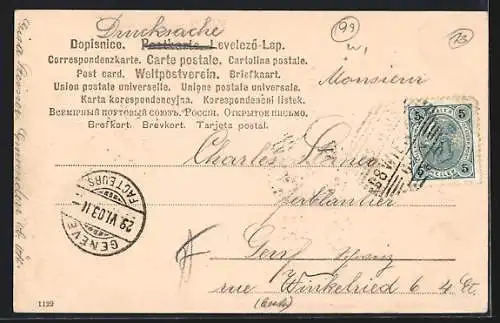 Drucksache
Dopisnice. Postkarte. Levelező-Lap.
Correspondenzkarte. Carte postale. Cartolina postale.
Post card. Weltpostverein. Briefkaart.
Union postale universelle. Unione postale universale.
Karta korespondencyjna. Korespondenční listek.
Всемирный почтовый союзъ. Россія. Открытое письмо.
Brefkort. Brévkort. Tarjeta postal.
99
Monsieur
5 5
5 5
HELLER
WIEN
Charles
GENÈVE
29.VI.03.11
FACTEURS
Genf Schweiz
rue Winkelried 6 4. Et.
1122